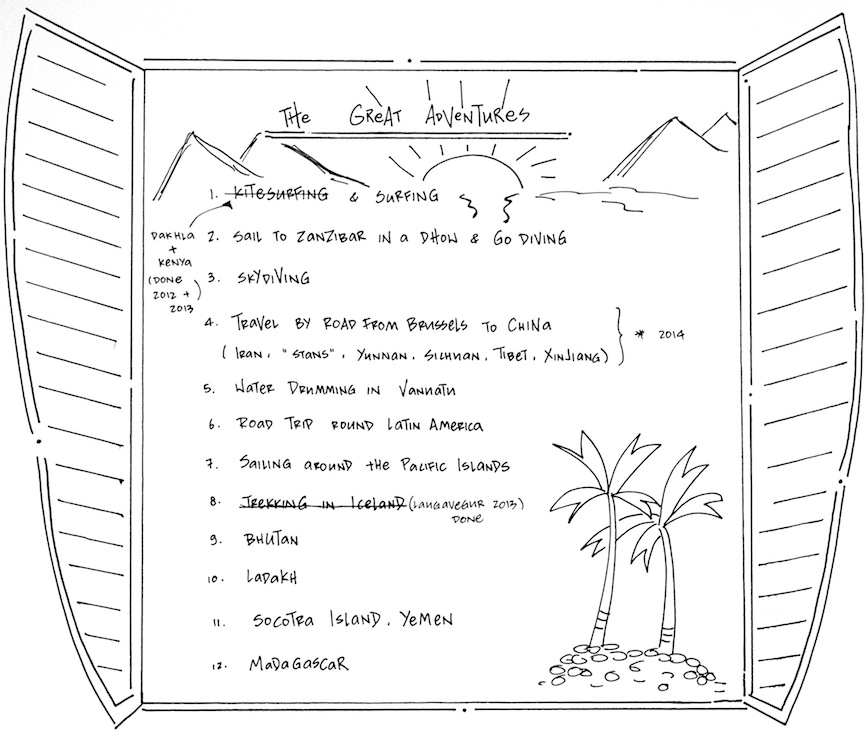 THE GREAT ADVENTURES
1. KITESURFING & SURFING
DAKHLA
+
KENYA
(DONE
2012 +
2013)
2. SAIL TO ZANZIBAR IN A DHOW & GO DIVING
3. SKYDIVING
4. TRAVEL BY ROAD FROM BRUSSELS TO CHINA
(IRAN, "STANS", YUNNAN, SICHUAN, TIBET, XINJIANG)
* 2014
5. WATER DRUMMING IN VANUATU
6. ROAD TRIP ROUND LATIN AMERICA
7. SAILING AROUND THE PACIFIC ISLANDS
8. TREKKING IN ICELAND (LAUGAVEGUR 2013)
DONE
9. BHUTAN
10. LADAKH
11. SOCOTRA ISLAND, YEMEN
12. MADAGASCAR